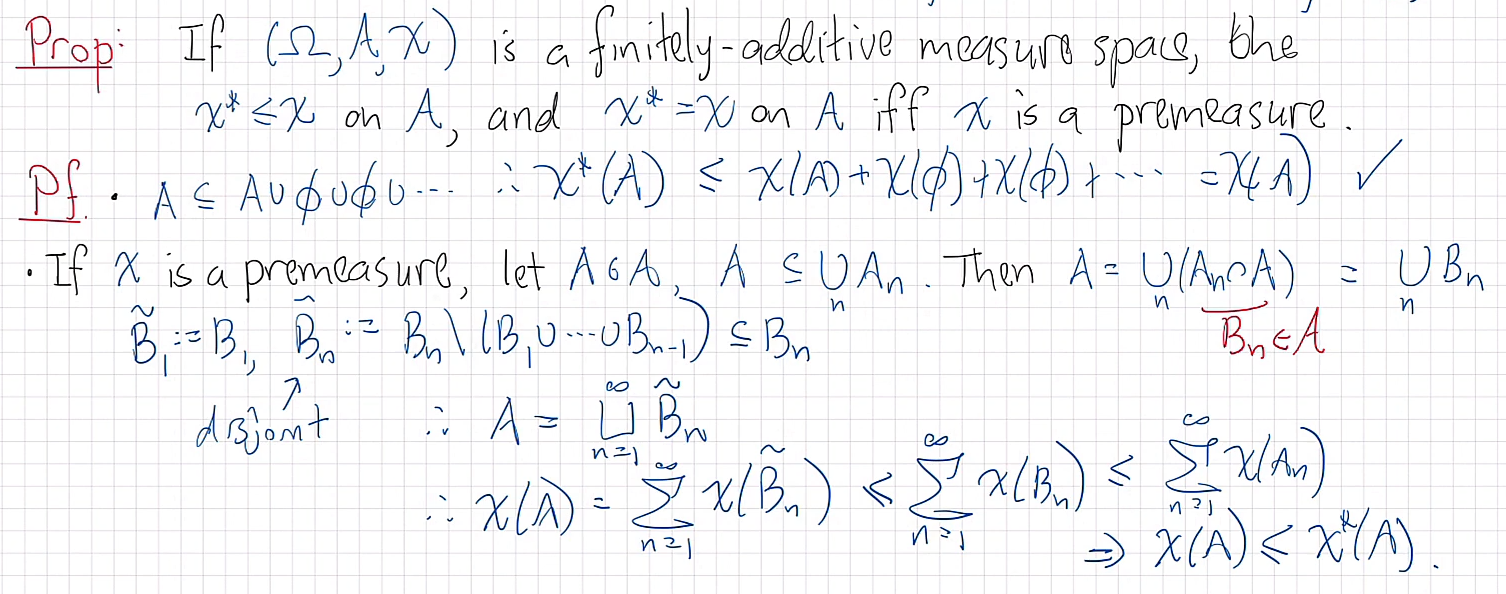 Prop: If (Ω, A, χ) is a finitely-additive measure space, the
χ* ≤ χ on A, and χ* = χ on A iff χ is a premeasure.
Pf. • A ⊆ A ∪ ϕ ∪ ϕ ∪ ··· ∴ χ*(A) ≤ χ(A) + χ(ϕ) + χ(ϕ) + ··· = χ(A) ✓
• If χ is a premeasure, let A ∈ A, A ⊆ ∪_n A_n. Then A = ∪_n (A_n ∩ A) = ∪_n B_n
B_n ∈ A
B̃_1 := B_1, B̃_n := B_n \ (B_1 ∪ ··· ∪ B_{n-1}) ⊆ B_n
↗
disjoint ∴ A = ⊔_{n=1}^∞ B̃_n
∴ χ(A) = ∑_{n=1}^∞ χ(B̃_n) ≤ ∑_{n=1}^∞ χ(B_n) ≤ ∑_{n=1}^∞ χ(A_n)
⇒ χ(A) ≤ χ*(A).